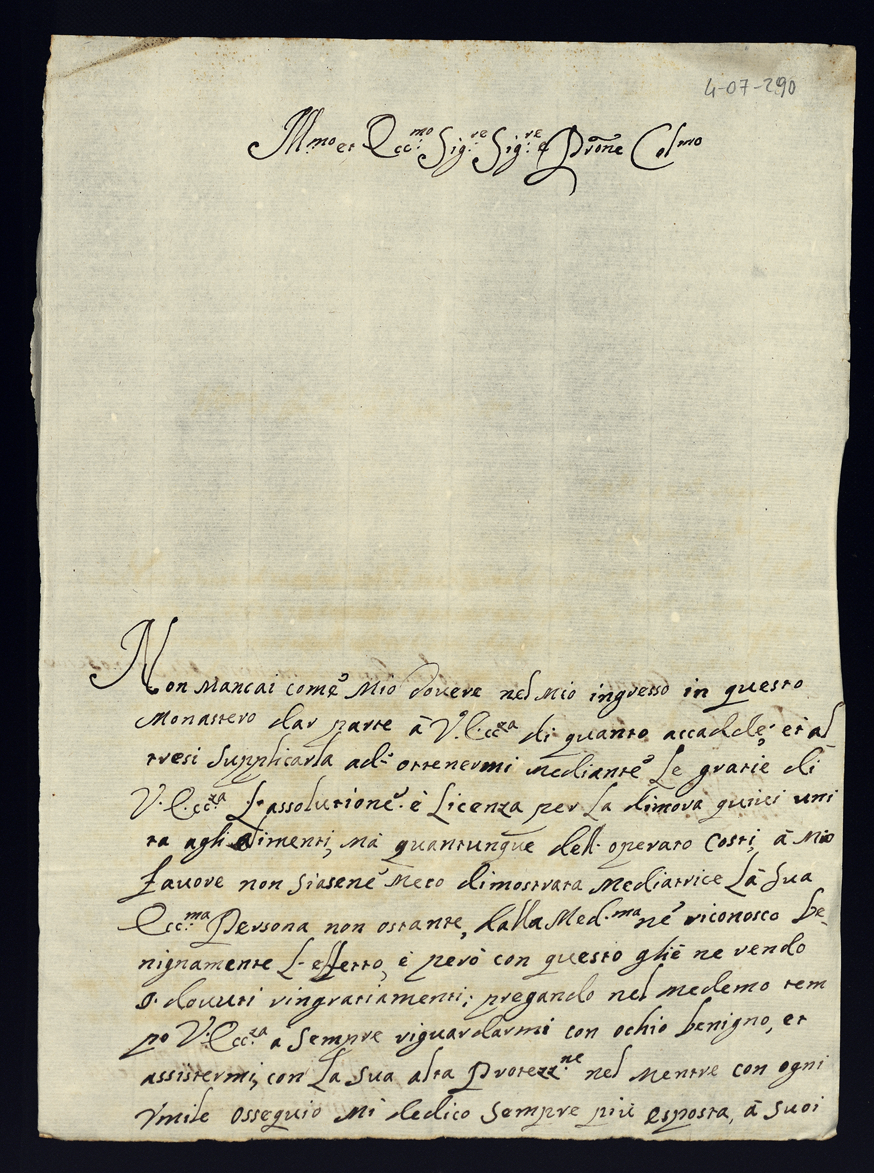 4-07-290
Ill.mo et Ecc.mo Sig.re Sig.re e Prone Colmo
Non mancai come Mio dovere nel Mio ingresso in questo
Monastero dar parte à V. Ecc.za di quanto accadde, et al
tresi supplicarla ad ottenermi mediante Le gratie di
V. Ecc.za L'assolutione è Licenza per La dimora quivi uni
ta agli alimenti, mà quantunque dell'operato Costi, à Mio
favore non siasene Meco dimostrata Mediatrice Là Sua
Ecc.ma Persona non ostante, dalla Med.ma nè riconosco be-
nignamente L'effetto, è però con questo gliè ne rendo
i dovuti ringratiamenti; pregando nel medemo tem
po V. Ecc.za a Sempre riguardarmi con ochio benigno, et
assistermi, con La Sua alta Protezz.ne nel Mentre con ogni
Vmile ossequio Mi dedico Sempre più esposta, à Suoi